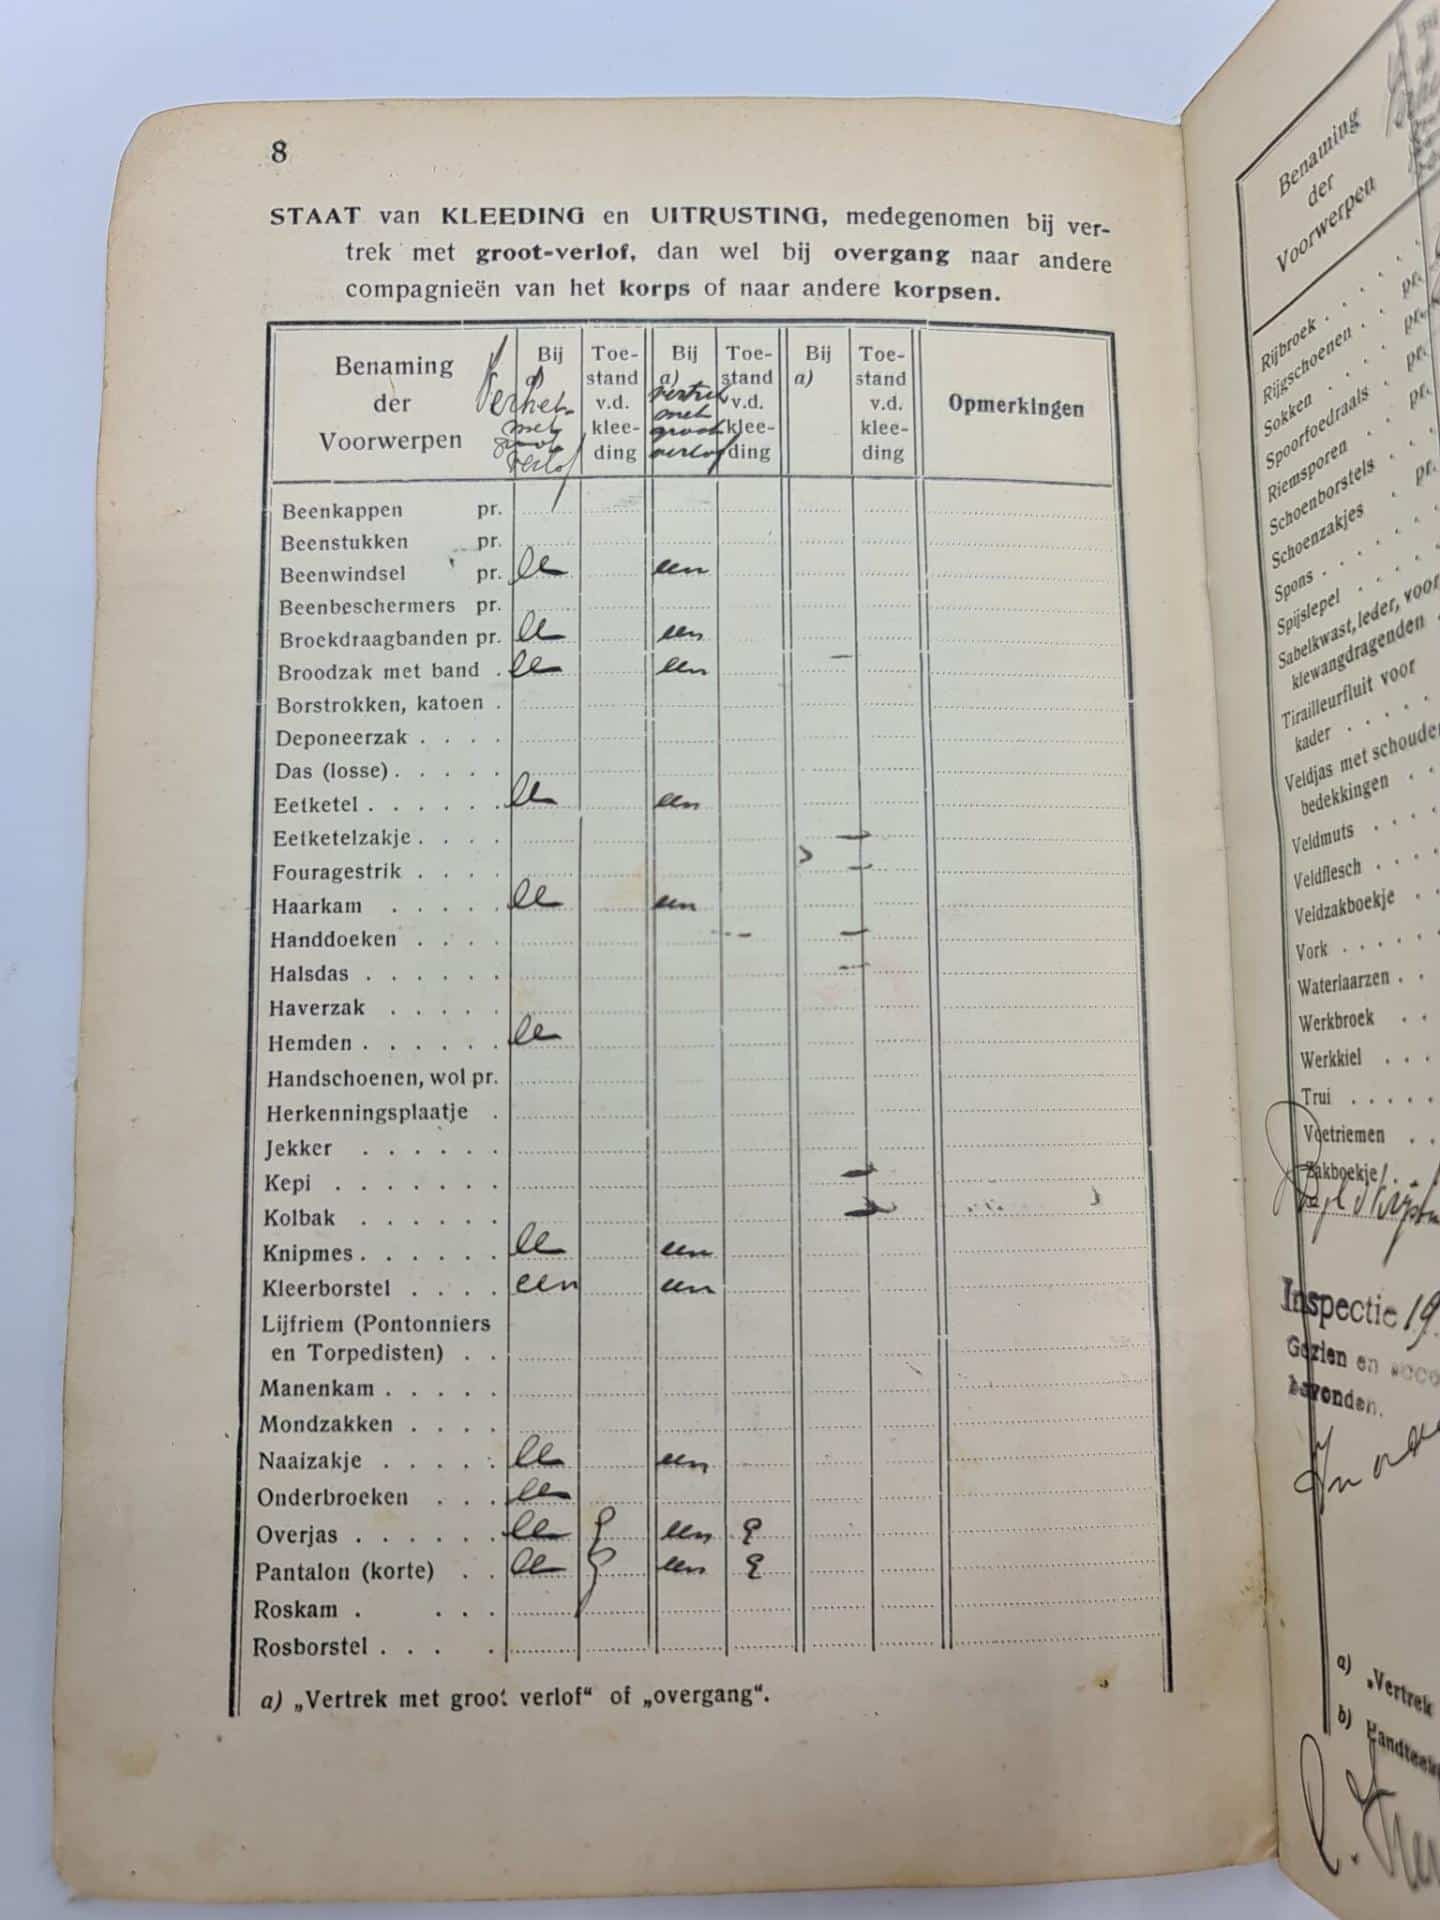 8
STAAT van KLEEDING en UITRUSTING, medegenomen bij ver-
trek met groot-verlof, dan wel bij overgang naar andere
compagnieën van het korps of naar andere korpsen.
Benaming der Voorwerpen
Bij a) met groot verlof
Toe-stand v.d. klee-ding
Bij a) vertrek met groot verlof
Toe-stand v.d. klee-ding
Bij a)
Toe-stand v.d. klee-ding
Opmerkingen
Beenkappen pr.
Beenstukken pr.
Beenwindsel pr. een
Beenbeschermers pr.
Brockdraagbanden pr. een
Broodzak met band . een
Borstrokken, katoen .
Deponeerzak . . . .
Das (losse) . . . . .
Eetketel . . . . . . een
Eetketelzakje . . . .
Fouragestrik . . . .
Haarkam . . . . . een
Handdoeken . . . .
Halsdas . . . . . .
Haverzak . . . . .
Hemden . . . . . .
Handschoenen, wol pr.
Herkenningsplaatje .
Jekker . . . . . .
Kepi . . . . . . .
Kolbak . . . . . .
Knipmes . . . . . . een
Kleerborstel . . . . een een
Lijfriem (Pontonniers
en Torpedisten) . .
Manenkam . . . . .
Mondzakken . . . .
Naaizakje . . . . . een
Onderbroeken . . .
Overjas . . . . . . een
Pantalon (korte) . . een
Roskam . . . .
Rosborstel . . . .
a) „Vertrek met groot verlof“ of „overgang“.
Benaming
der
Voorwerpen
Rijbroek . . . . .
Rijgschoenen . . pr.
Sokken . . . . pr.
Spoorfoedraals . pr.
Riemsporen . . pr.
Schoenborstels . .
Schoenzakjes . pr.
Spons . . . . .
Spijslepel . . . .
Sabelkwast, leder, voor
klewangdragenden
Tirailleurfluit voor
kader . . . . .
Veldjas met schouder
bedekkingen . .
Veldmuts . . . .
Veldflesch . . . .
Veldzakboekje . .
Vork . . . . . .
Waterlaarzen . .
Werkbroek . .
Werkkiel . . .
Trui . . . . .
Voetriemen . .
Zakboekje . .
Inspectie 19
Gezien en acco
bevonden.
a) „Vertrek
b) Handteek